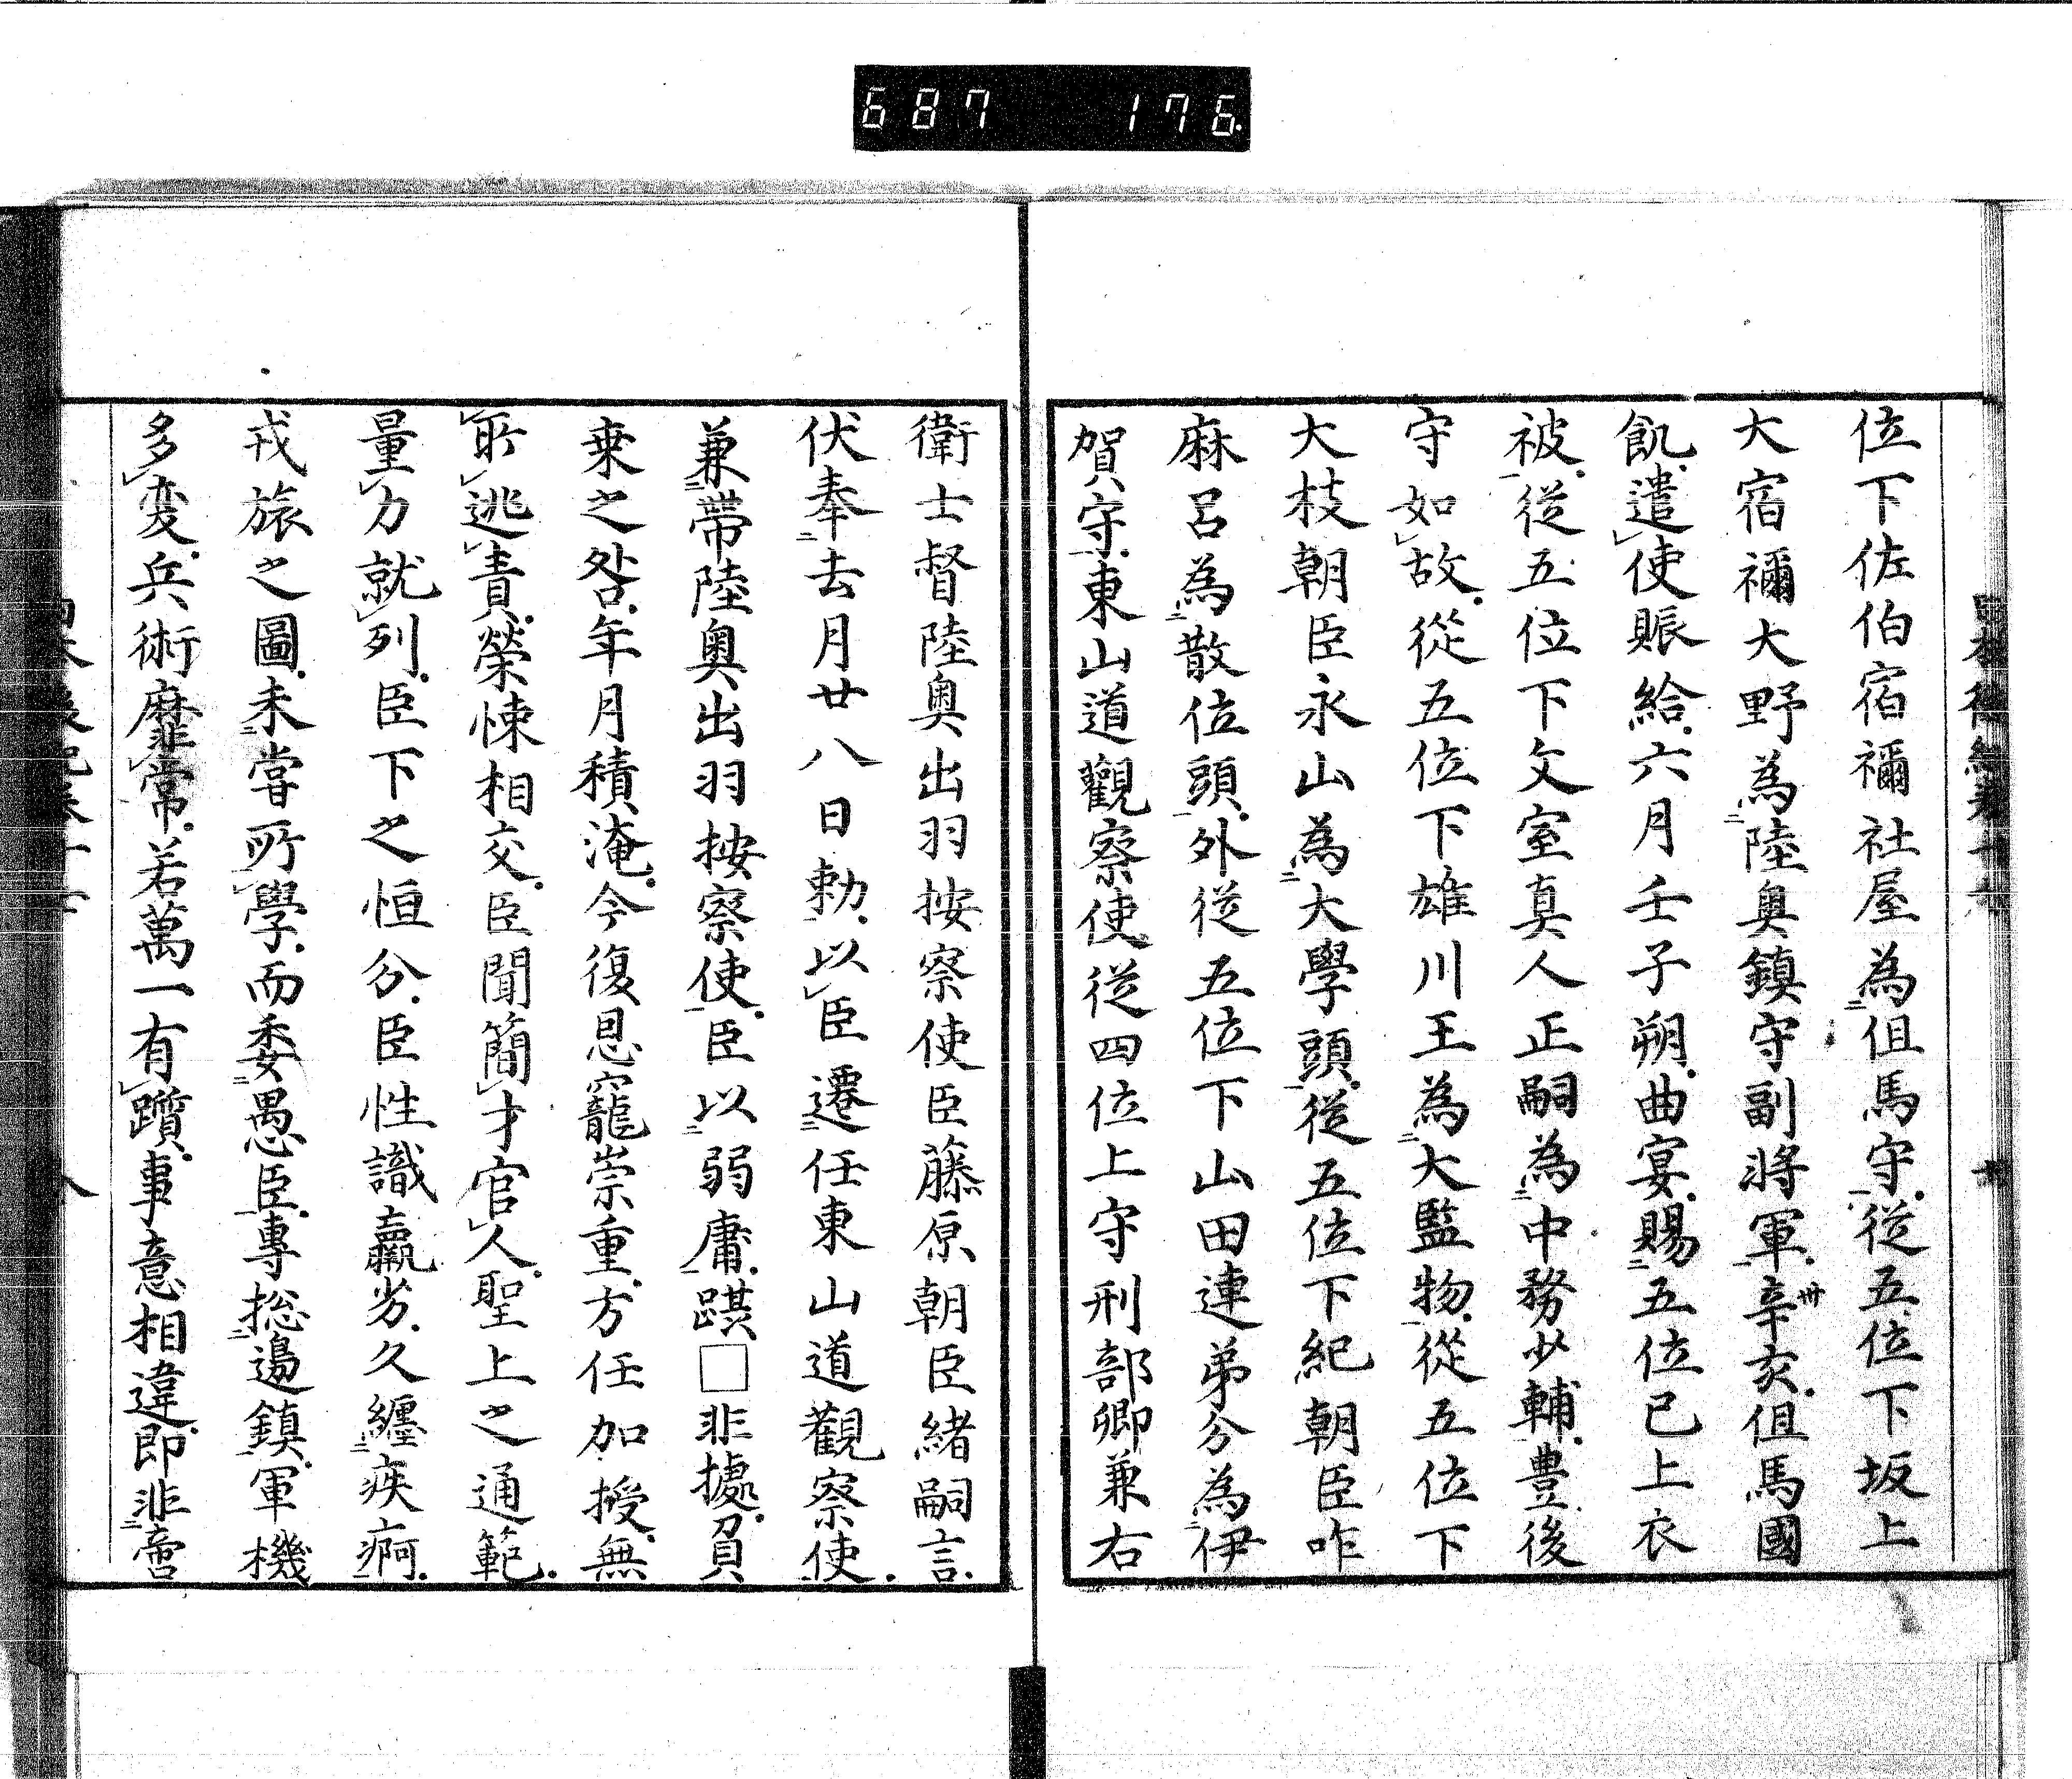 687 176
位下佐伯宿禰社屋為但馬守從五位下坂上
大宿禰大野為陸奥鎮守副將軍辛亥但馬國
卅
飢遣使賑給六月壬子朔曲宴賜五位已上衣
被從五位下文室真人正嗣為中務少輔豊後
守如故從五位下雄川王為大監物從五位下
大枝朝臣永山為大學頭從五位下紀朝臣咋
麻呂為散位頭外從五位下山田連弟分為伊
賀守東山道觀察使從四位上守刑部卿兼右
衛士督陸奥出羽按察使臣藤原朝臣緒嗣言
伏奉去月廿八日勅以臣遷任東山道觀察使
兼帶陸奥出羽按察使臣以弱庸踑□非據負
乗之咎年月積淹今復恩寵崇重方任加授無
所逃責榮悚相交臣聞簡才官人聖上之通範
量力就列臣下之恒分臣性識羸劣久纏疾痾
戎旅之圖未甞所學而委愚臣專捴邊鎮軍機
多変兵術靡常若萬一有躓事意相違即非啻